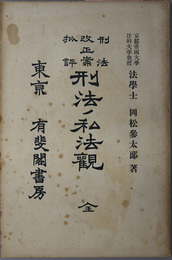 京都帝國大學
法科大學教授
法學士 岡松參太郎 著
刑法
改正案
批評
刑法ノ私法觀 全
東京 有斐閣書房